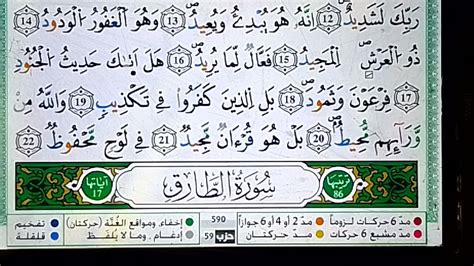 رَبِّكَ لَشَدِيدٌ ١٢ إِنَّهُۥ هُوَ يُبْدِئُ وَيُعِيدُ ١٣ وَهُوَ ٱلْغَفُورُ ٱلْوَدُودُ ١٤
ذُو ٱلْعَرْشِ ٱلْمَجِيدُ ١٥ فَعَّالٌ لِّمَا يُرِيدُ ١٦ هَلْ أَتَىٰكَ حَدِيثُ ٱلْجُنُودِ
١٧ فِرْعَوْنَ وَثَمُودَ ١٨ بَلِ ٱلَّذِينَ كَفَرُوا۟ فِى تَكْذِيبٍ ١٩ وَٱللَّهُ مِن
وَرَآئِهِم مُّحِيطٌۢ ٢٠ بَلْ هُوَ قُرْءَانٌ مَّجِيدٌ ٢١ فِى لَوْحٍ مَّحْفُوظٍۭ ٢٢
ترتيبها 86 سُورَةُ الطَّارِقِ آياتها 17
مدّ 6 حركات لزوماً مدّ 2 أو 4 أو 6 جوازاً 590 إخفاء، ومواقع الغُنَّة (حركتان) تفخيم
مدّ مشبع 6 حركات مدّ حركتان حزب 59 إدغام، وما لا يُلفَظ قلقلة